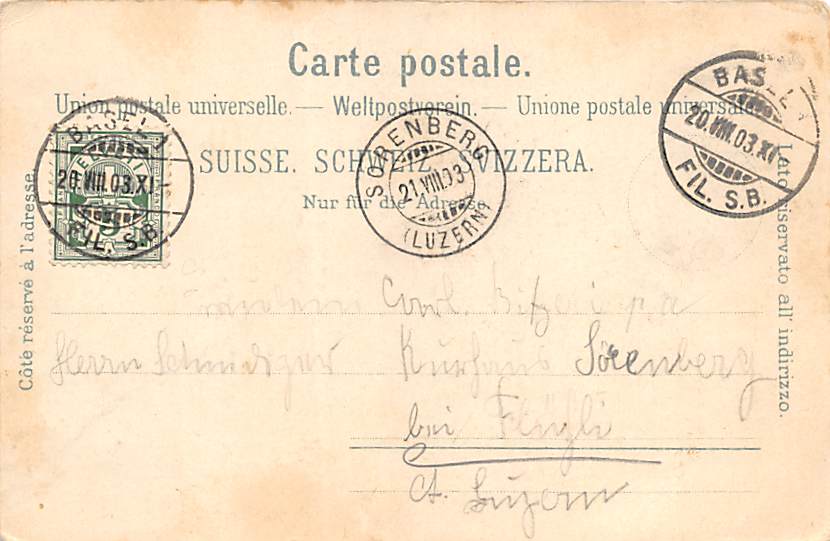 Carte postale.
Union postale universelle. — Weltpostverein. — Unione postale universale.
SUISSE. SCHWEIZ. SVIZZERA.
Nur für die Adresse.
Côté réservé à l'adresse.
Lato riservato all' indirizzo.
BASEL 1
20.VIII.03.XI-
FIL. S.B.
HELVETIA
5
SÖRENBERG
21.VIII.03
(LUZERN)
BASEL 1
20.VIII.03.XI-
FIL. S.B.
Carl.
Herrn Schnidiger Kurhaus Sörenberg
bei Flühli
Ct. Luzern